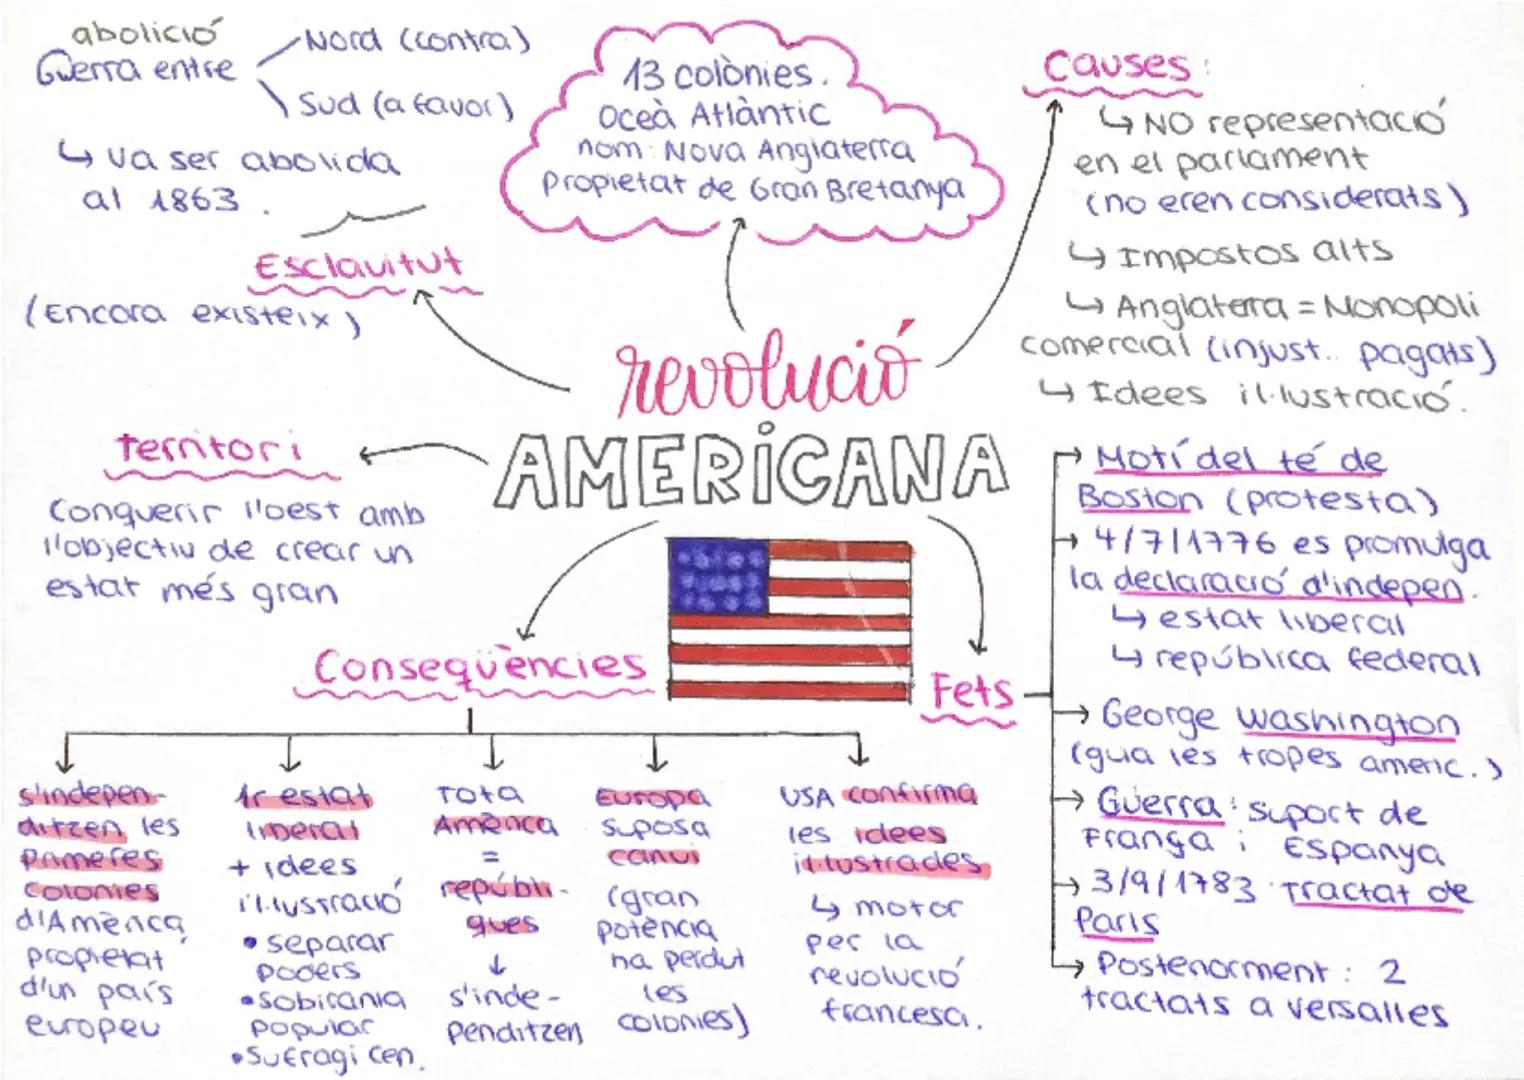 abolició
Guerra entre
Nord (contra)
Sud (a favor)
↳ Va ser abolida
al 1863.
Esclavitut
(Encara existeix)
13 colònies.
Oceà Atlàntic
nom: Nova Anglaterra
Propietat de Gran Bretanya
Causes:
↳ NO representació
en el parlament
(no eren considerats)
↳ Impostos alts
↳ Anglaterra = Monopoli
comercial (injust.. pagats)
↳ Idees il·lustració.
revolució
AMERICANA
Territori
Conquerir l'oest amb
l'objectiu de crear un
estat més gran
Conseqüències
s'indepen-
ditzen les
primeres
colonies
d'Amèrica
propietat
d'un país
europeu
1r estat
liberal
+ idees
il·lustració
• separar
poders
• Sobirania
popular
• Sufragi cen.
Tota
Amèrica
=
repúbli-
ques
↓
s'inde-
penditzen
Europa
suposa
canvi
(gran
potència
ha perdut
les
colonies)
USA confirma
les idees
il·lustrades
↳ motor
per la
revolució
francesa.
Fets
→ Motí del té de
Boston (protesta)
→ 4/7/1776 es promulga
la declaració d'indepen.
↳ estat liberal
↳ república federal
→ George Washington
(guia les tropes americ.)
→ Guerra: suport de
França i Espanya
→ 3/9/1783 Tractat de
París
→ Posteriorment: 2
tractats a Versalles